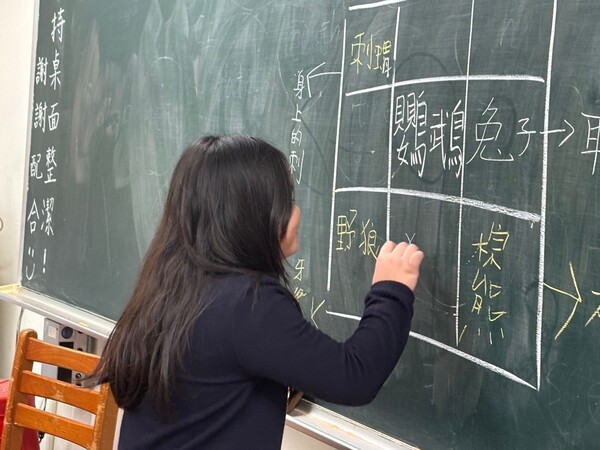 持桌面整潔！
謝謝配合
身上的刺
刺蝟
鸚鵡
兔子
野狼
棕熊
牙